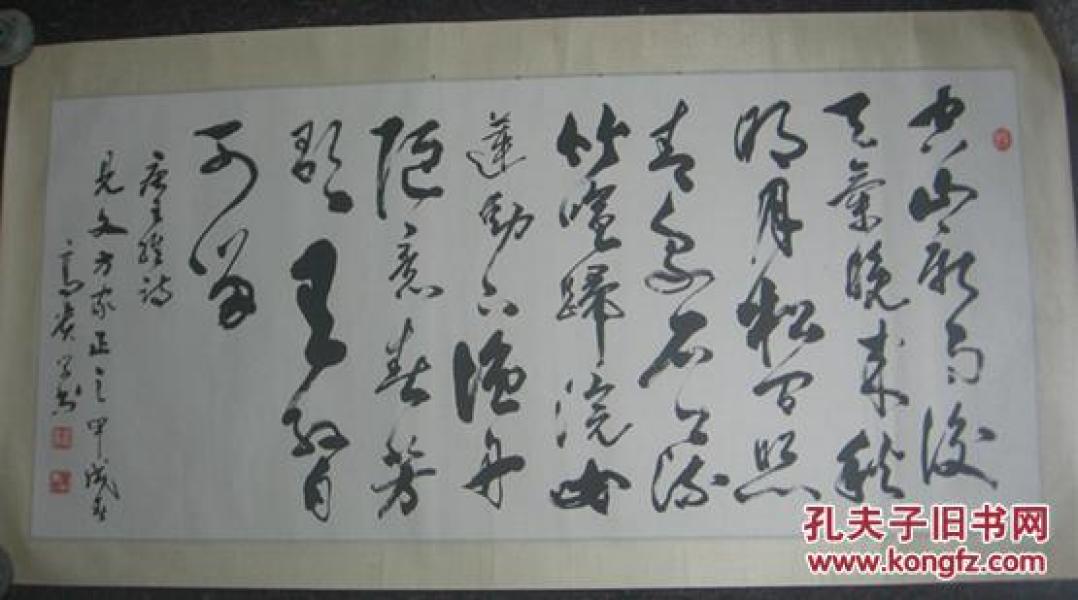 空山新雨後
天氣晚來秋
明月松间照
清泉石上流
竹喧歸浣女
蓮動下漁舟
随意春芳
歇王孫自
可留
唐王維詩
見文方家正之甲戌春
孔夫子旧书网
www.kongfz.com